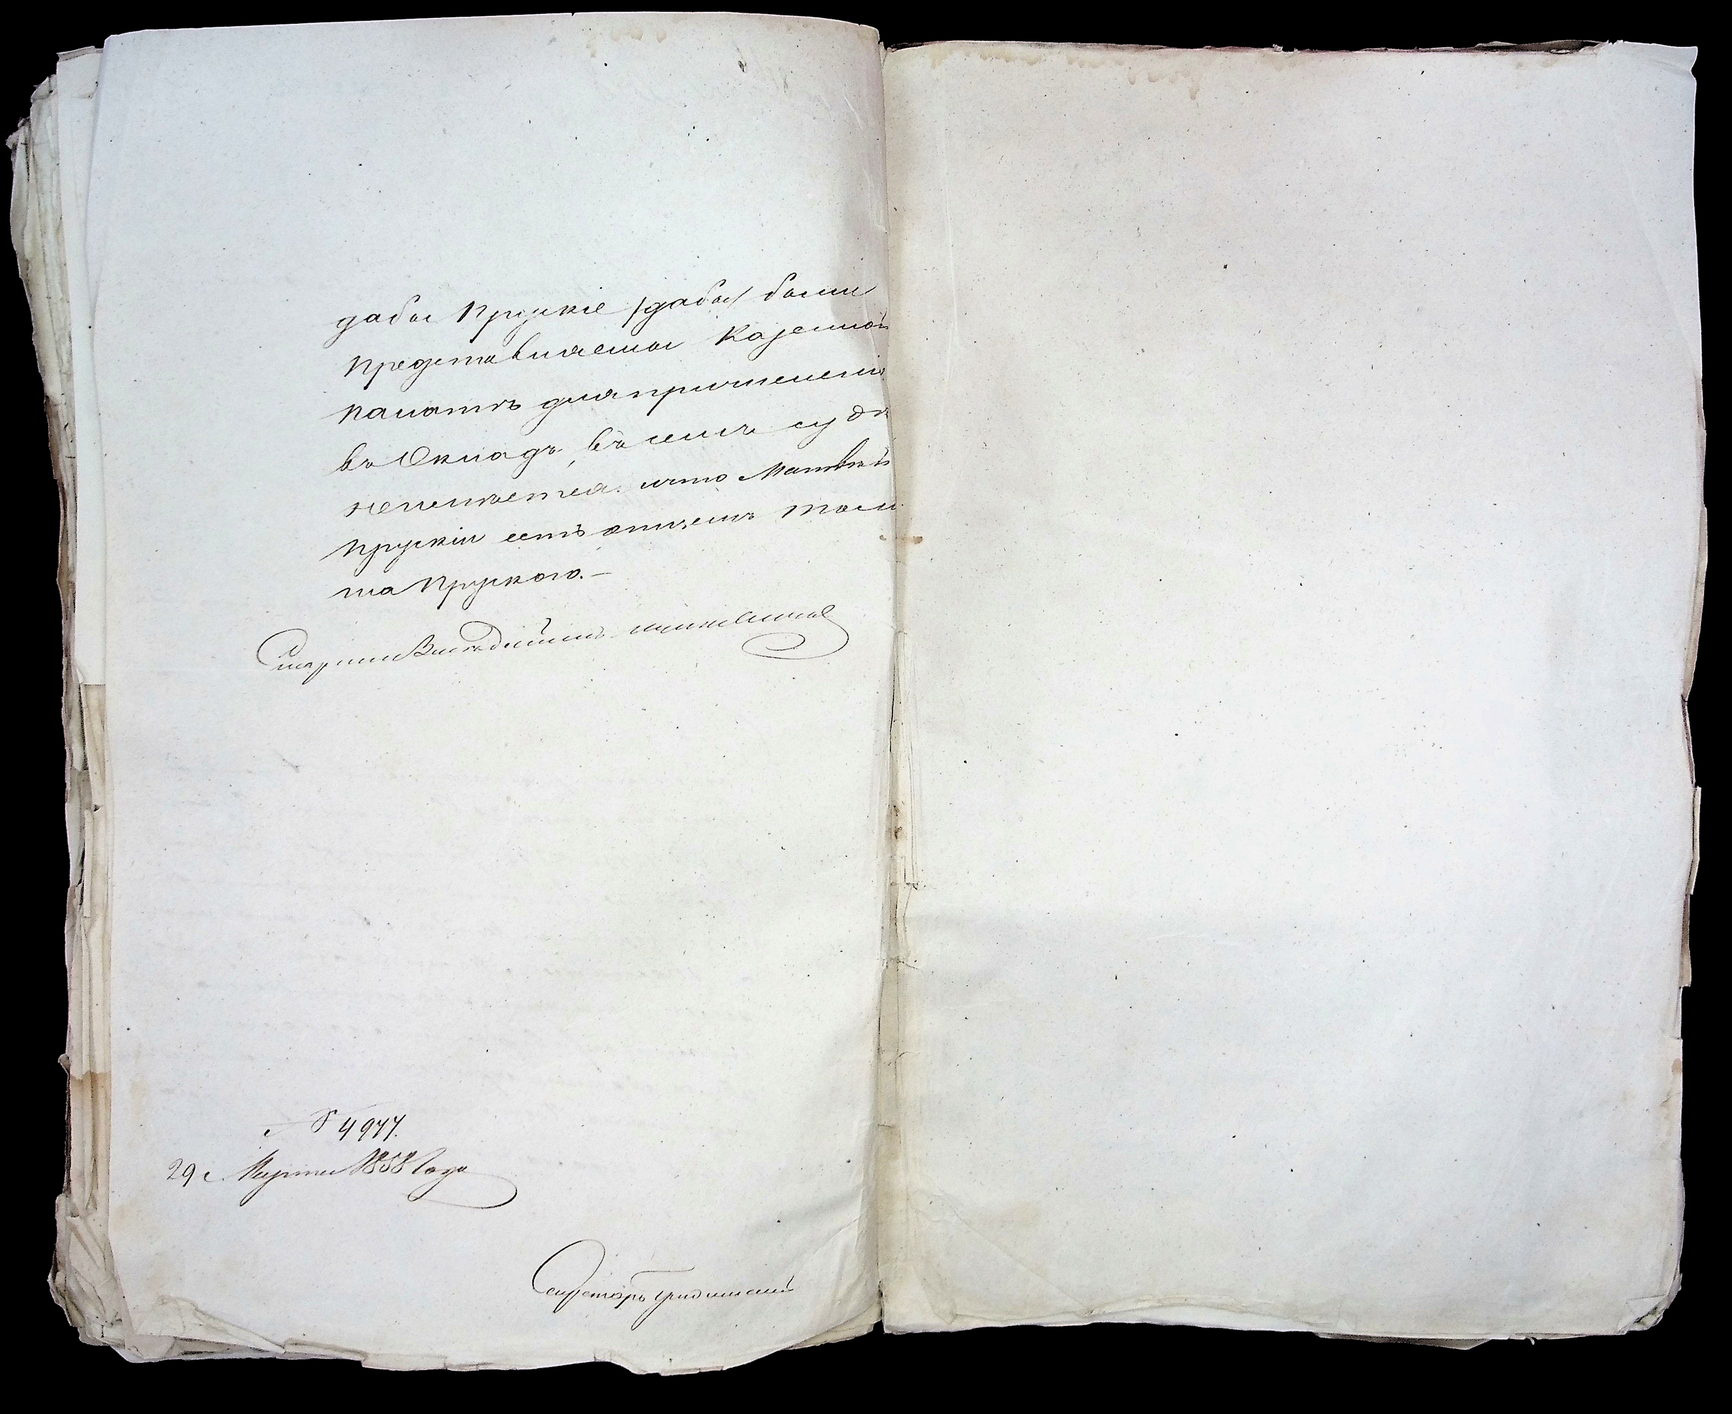 дабы Прускіе /дабы/ были
представляемы Казенной
палатѣ для причисленія
въ Окладъ, въ семъ судѣ
неимѣется. что Матвѣй
Прускій есть отцемъ Тома
ша Пруского. —
№ 4977.
29 Марта 1858 Года
Секретарь